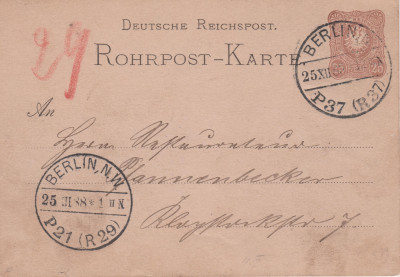 DEUTSCHE REICHSPOST.
29
ROHRPOST-KARTE
BERLIN
25 XII
P37 (R37)
25 25
An
Herrn Restaurateur
Pfannenbecker
Klopstockstr 7.
BERLIN, N.W.
25 88
P21 (R29)